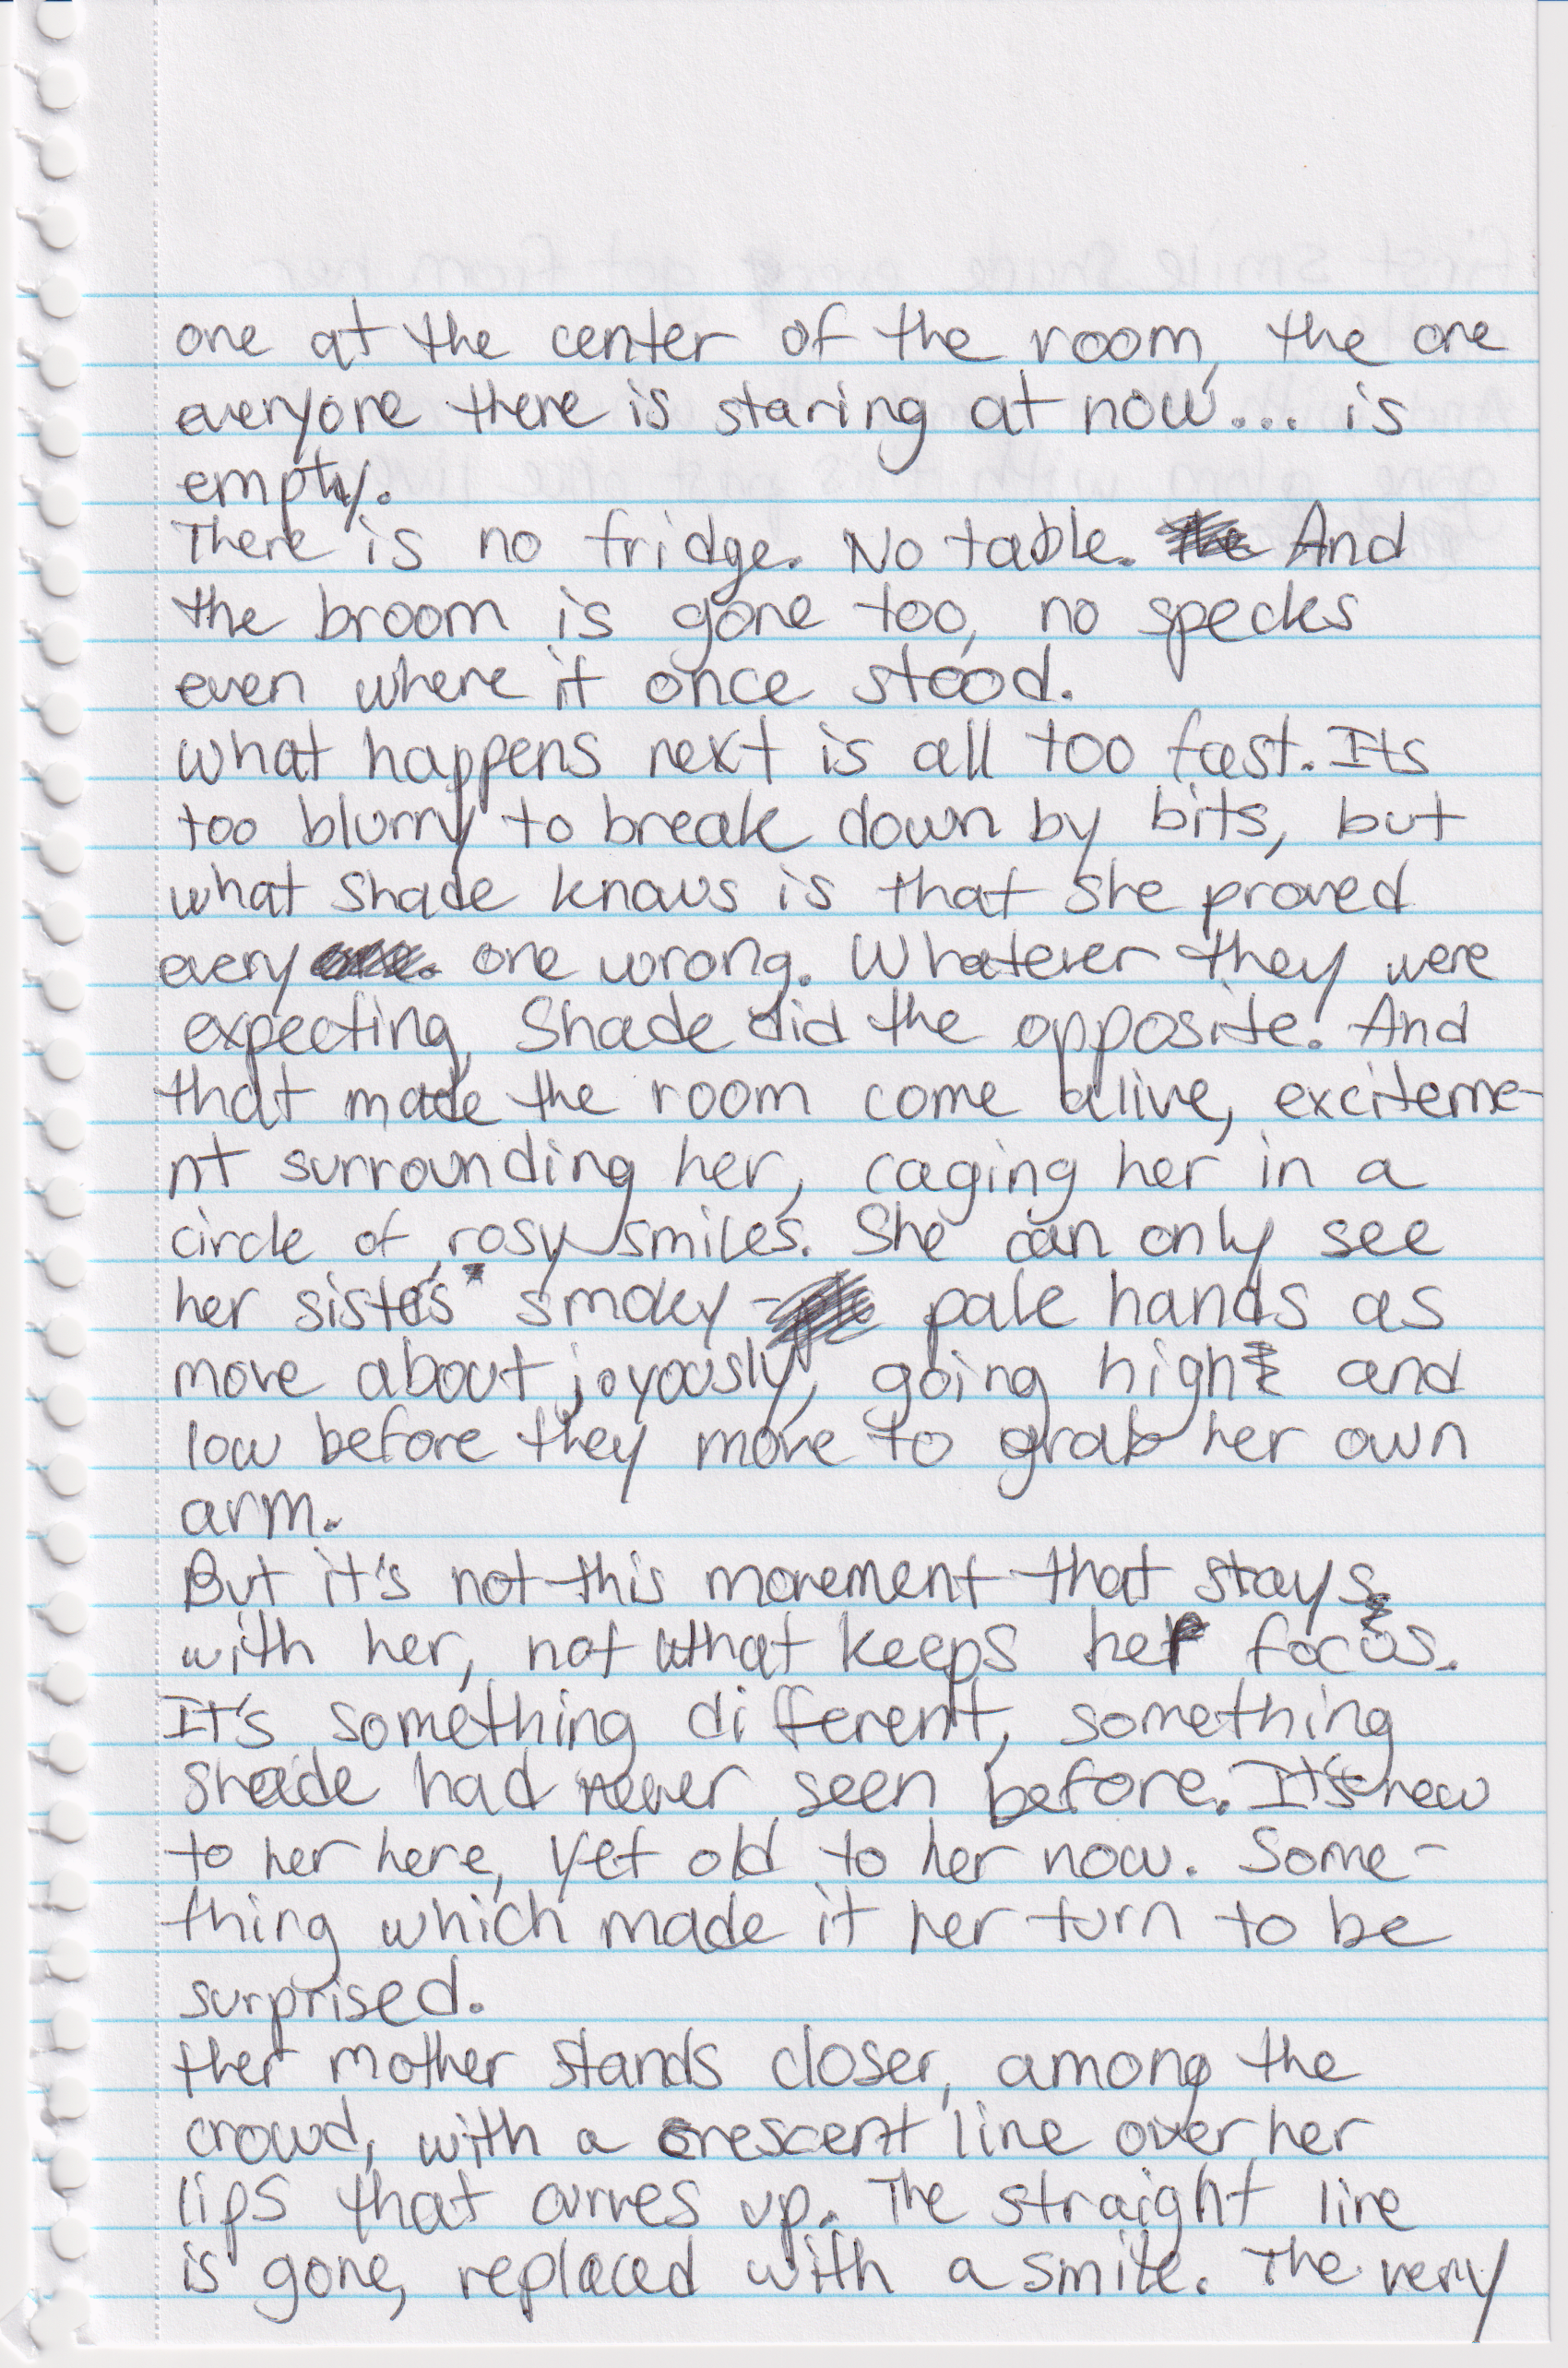 one at the center of the room, the one
everyone there is staring at now... is
empty.
There is no fridge. No table. And
the broom is gone too, no specks
even where it once stood.
what happens next is all too fast. Its
too blurry to break down by bits, but
what Shade knows is that she proved
every one wrong. Whatever they were
expecting, Shade did the opposite. And
that made the room come alive, exciteme-
nt surrounding her, caging her in a
circle of rosy smiles. She can only see
her sister's smoky - pale hands as
move about joyously, going high and
low before they move to grab her own
arm.
But it's not this movement that stays
with her, not what keeps her focus.
It's something different, something
Shade had never seen before. It's new
to her here, yet old to her now. Some-
thing which made it her turn to be
surprised.
Her mother stands closer, among the
crowd, with a crescent line over her
lips that curves up. The straight line
is gone, replaced with a smile. The very